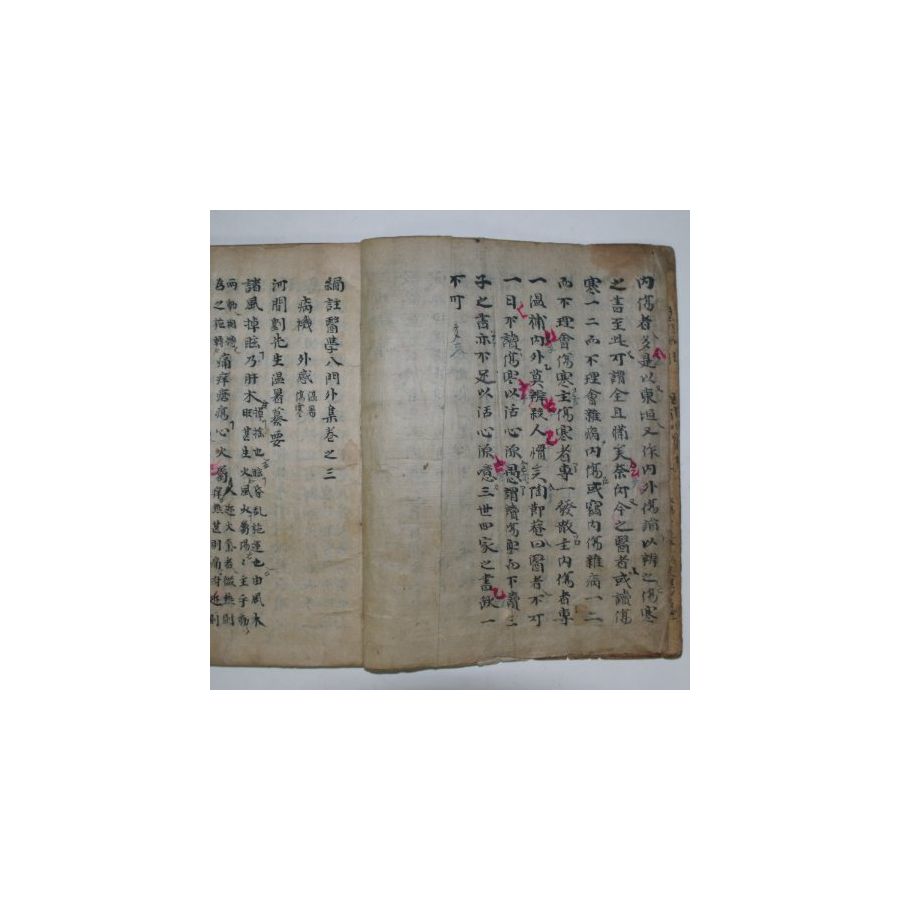 內傷者多是以東垣又作內外傷論以辨之傷寒
之書至此可謂全且備矣奈何今之醫者或讀傷
寒一二而不理會雜病內傷或竊內傷雜病一二
而不理會傷寒主傷寒者專一發散主內傷者專
一溫補內外莫辨殺人慣矣陶節菴曰醫者不可
一日不讀傷寒以活心源愚謂讀傷寒而不讀二
子之書亦不足以活心源噫三世四家之書缺一
不可
編註醫學入門外集卷之三
病機 外感 溫暑 傷寒
河間劉先生溫暑纂要
諸風掉眩乃肝木 掉搖也眩昏亂旋運也由風木
旺甚生火風火屬陽主乎動
兩動相搏 之旋轉 痛痒瘡瘍心火屬 人近火氣者微熱則
痒熱甚則痛附近則